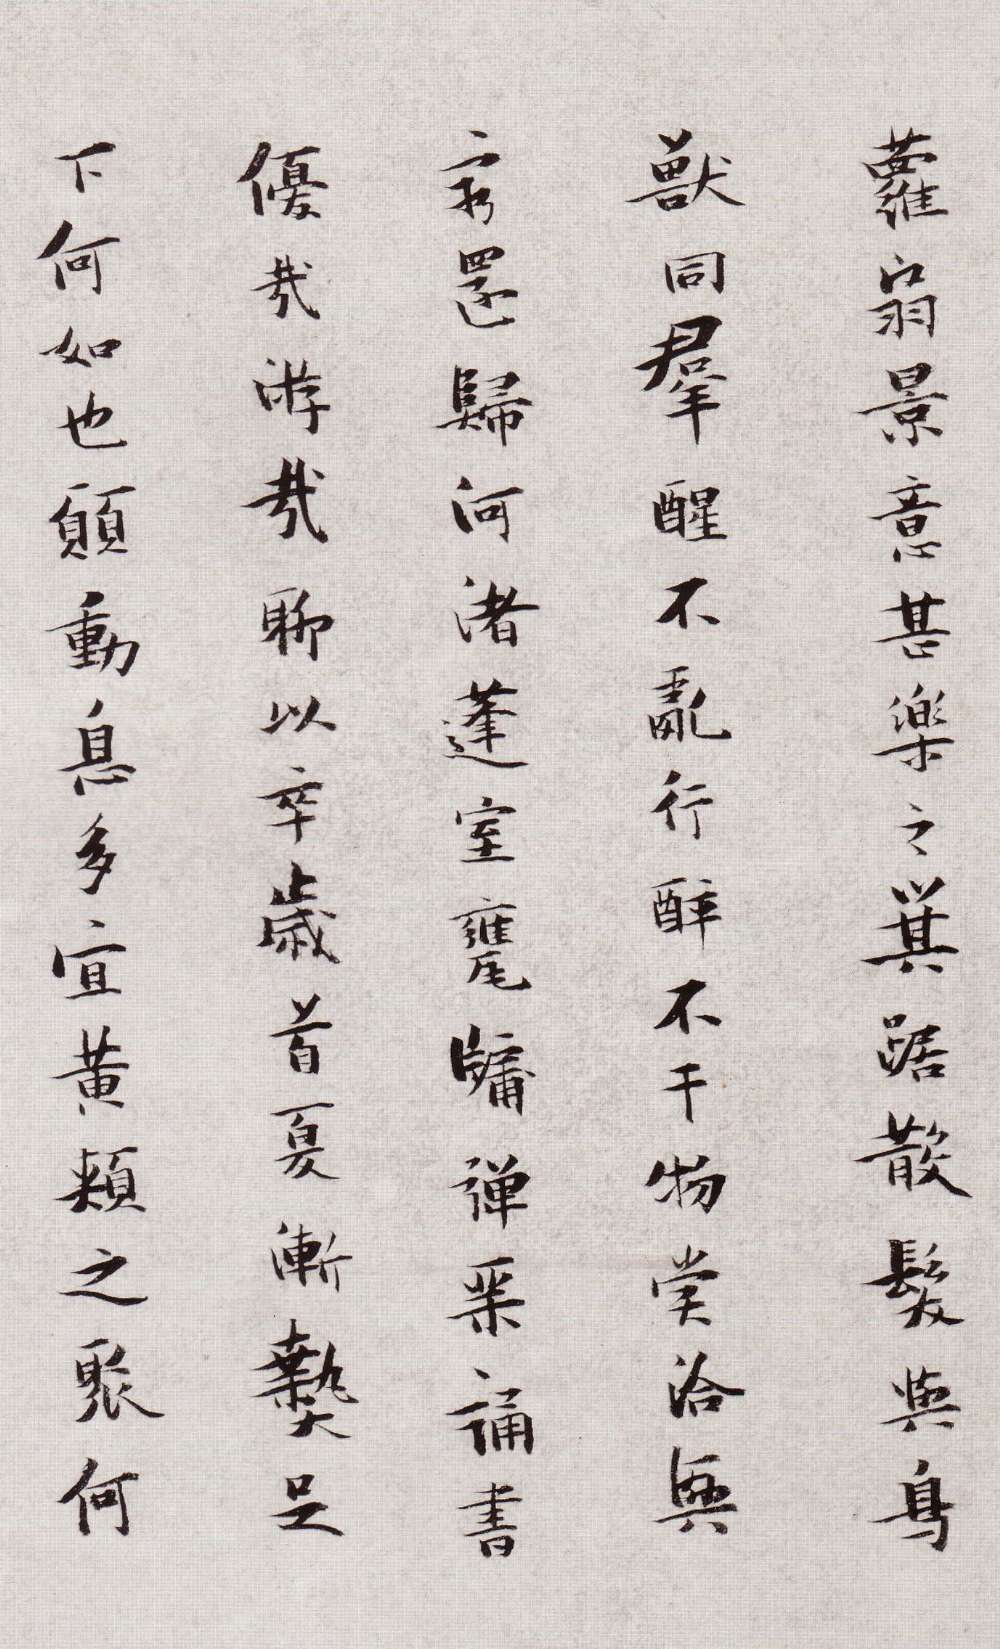 蘿翦景意甚樂之箕踞散髮與鳥
獸同羣醒不亂行醉不干物賞洽興
窮還歸河渚蓬室甕牖彈琴誦書
優哉游哉聊以卒歲首夏漸熱足
下何如也願動息多宜黃頰之聚何